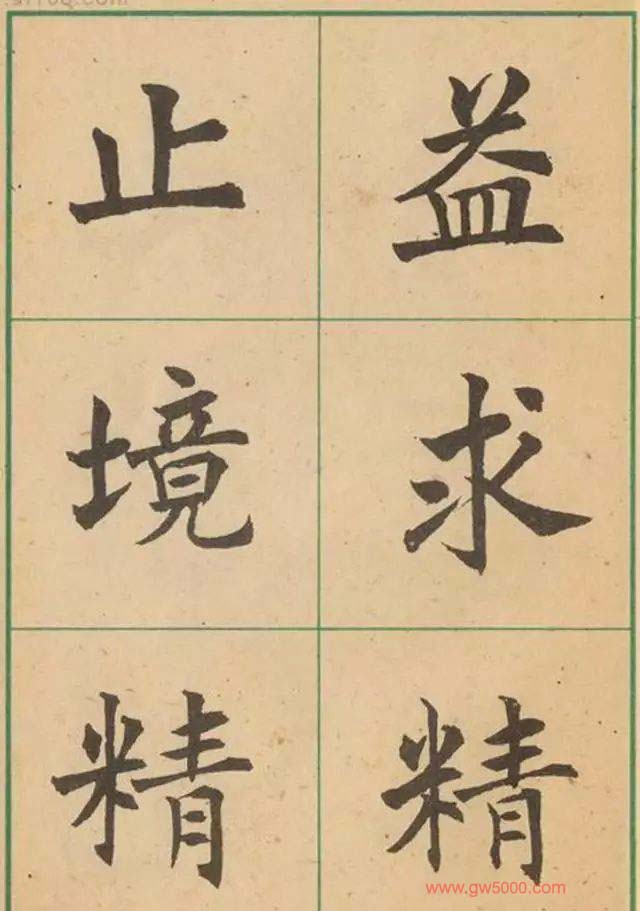 益求精
止境精
www.gw5000.com